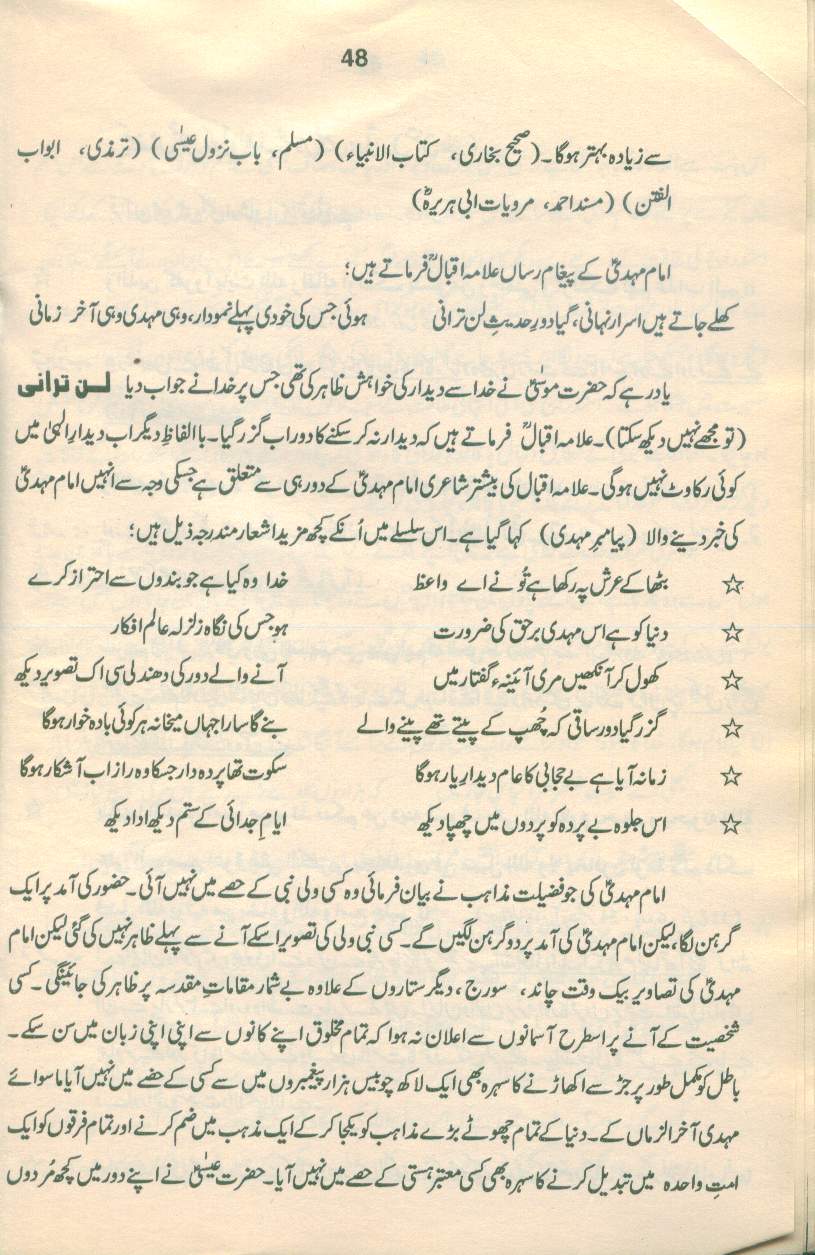 48
سے زیادہ بہتر ہوگا۔ (صحیح بخاری، کتاب الانبیاء) (مسلم، باب نزول عیسٰی) (ترمذی، ابواب
الفتن) (مسند احمد، مرویات ابی ہریرہؓ)
امام مہدیؑ کے پیغام رساں علامہ اقبالؒ فرماتے ہیں؛
کھلے جاتے ہیں اسرار نہانی، گیا دورِ حدیثِ لن ترانی ہوئی جس کی خودی پہلے نمودار، وہی مہدی وہی آخر زمانی
یاد رہے کہ حضرت موسٰیؑ نے خدا سے دیدار کی خواہش ظاہر کی تھی جس پر خدا نے جواب دیا لن ترانی
(تو مجھے نہیں دیکھ سکتا)۔ علامہ اقبالؒ فرماتے ہیں کہ دیدار نہ کر سکنے کا دور اب گزر گیا۔ باالفاظِ دیگر اب دیدارِ الہٰی میں
کوئی رکاوٹ نہیں ہوگی۔ علامہ اقبال کی بیشتر شاعری امام مہدیؑ کے دور ہی سے متعلق ہے جسکی وجہ سے انہیں امام مہدیؑ
کی خبر دینے والا (پیامبرِ مہدی) کہا گیا ہے۔ اس سلسلے میں اُنکے کچھ مزید اشعار مندرجہ ذیل ہیں؛
☆ بٹھا کے عرش پہ رکھا ہے تُو نے اے واعظ خدا وہ کیا ہے جو بندوں سے احتراز کرے
☆ دنیا کو ہے اس مہدی برحق کی ضرورت ہو جس کی نگاہ زلزلہ عالم افکار
☆ کھول کر آنکھیں مری آئینہء گفتار میں آنے والے دور کی دھندلی سی اک تصویر دیکھ
☆ گزر گیا دور ساقی کہ چُھپ کے پیتے تھے پینے والے بنے گا سارا جہاں میخانہ ہر کوئی بادہ خوار ہوگا
☆ زمانہ آیا ہے بے حجابی کا عام دیدارِ یار ہوگا سکوت تھا پردہ دار جسکا وہ راز اب آشکار ہوگا
☆ اس جلوہ بے پردہ کو پردوں میں چھپا دیکھ ایامِ جدائی کے ستم دیکھ ادا دیکھ
امام مہدیؑ کی جو فضیلت مذاہب نے بیان فرمائی وہ کسی ولی نبی کے حصے میں نہیں آئی۔ حضور کی آمد پر ایک
گرہن لگا، لیکن امام مہدیؑ کی آمد پر دو گرہن لگیں گے۔ کسی نبی ولی کی تصویر اسکے آنے سے پہلے ظاہر نہیں کی گئی لیکن امام
مہدیؑ کی تصاویر بیک وقت چاند، سورج، دیگر ستاروں کے علاوہ بے شمار مقاماتِ مقدسہ پر ظاہر کی جائینگی۔ کسی
شخصیت کے آنے پر اسطرح آسمانوں سے اعلان نہ ہوا کہ تمام مخلوق اپنے کانوں سے اپنی اپنی زبان میں سن سکے۔
باطل کو مکمل طور پر جڑ سے اکھاڑنے کا سہرہ بھی ایک لاکھ چوبیس ہزار پیغمبروں میں سے کسی کے حصّے میں نہیں آیا ماسوائے
مہدی آخر الزماں کے۔ دنیا کے تمام چھوٹے بڑے مذاہب کو یکجا کر کے ایک مذہب میں ضم کرنے اور تمام فرقوں کو ایک
امتِ واحدہ میں تبدیل کرنے کا سہرہ بھی کسی معتبر ہستی کے حصے میں نہیں آیا۔ حضرت عیسٰیؑ نے اپنے دور میں کچھ مُردوں